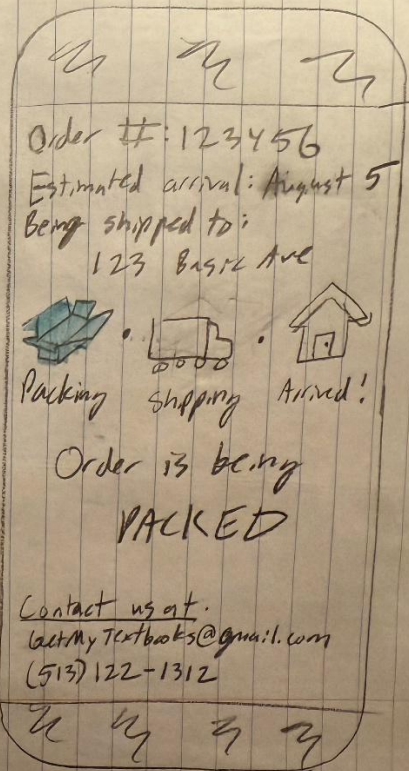 Order #: 123456
Estimated arrival: August 5
Being shipped to:
123 Basic Ave
Packing shipping Arrived!
Order is being
PACKED
Contact us at.
GetMyTextbooks@gmail.com
(513) 122-1312